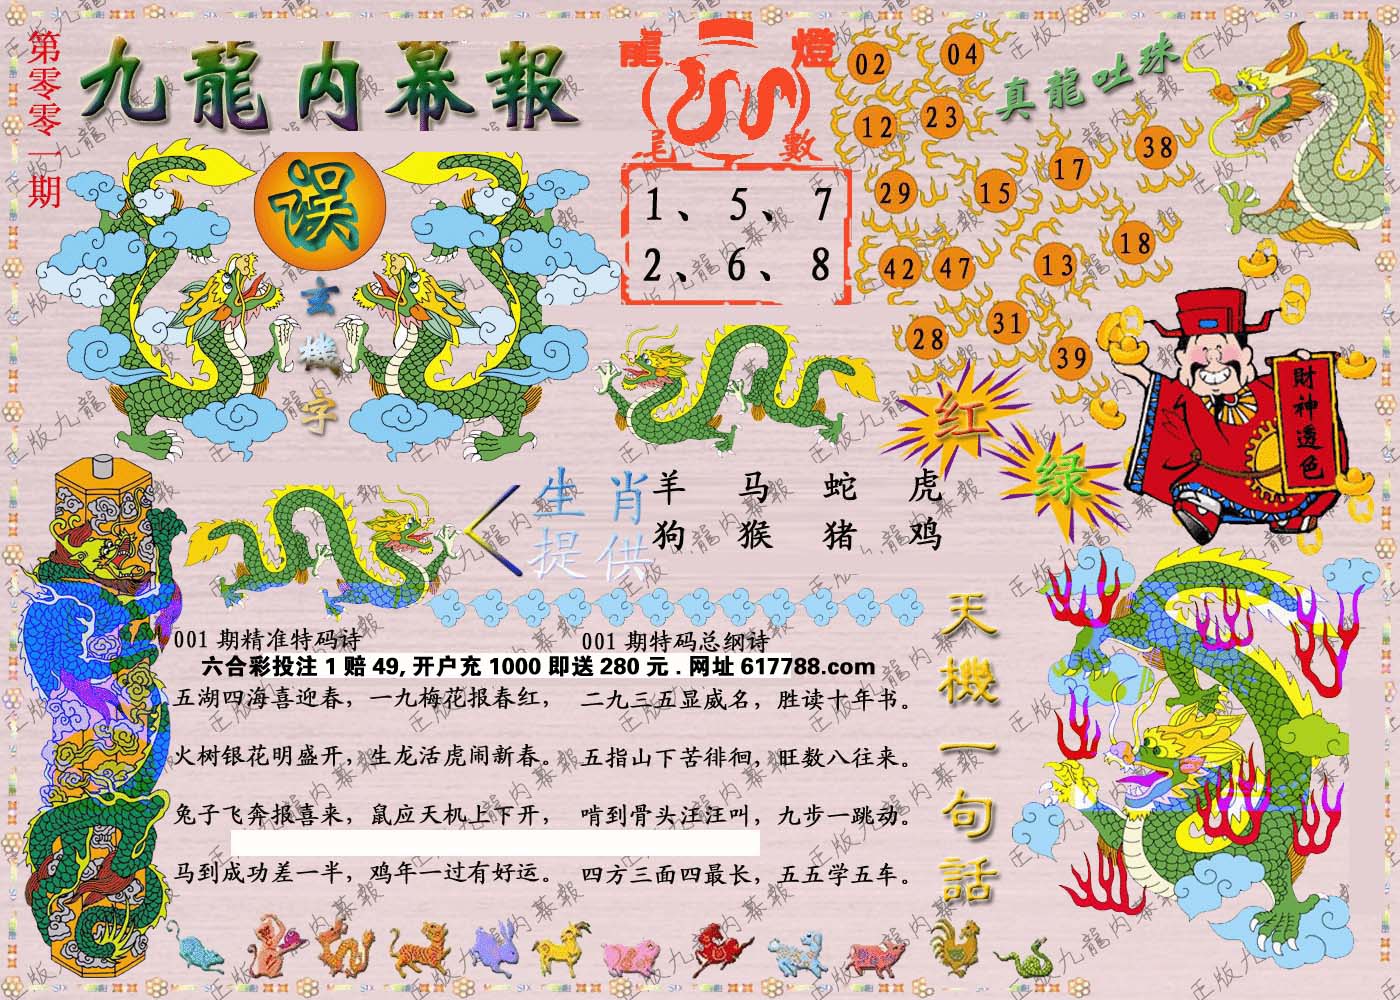 第零零一期
九龍内幕報
龍燈
尾數
1、5、7
2、6、8
02
04
12
23
真龍吐珠
38
17
29
15
18
42
47
13
28
31
39
误
玄機字
财神透色
红
绿
生肖
提供
羊 马 蛇 虎
狗 猴 猪 鸡
001 期精准特码诗
001 期特码总纲诗
六合彩投注 1 赔 49, 开户充 1000 即送 280 元 . 网址 617788.com
五湖四海喜迎春，一九梅花报春红，
二九三五显威名，胜读十年书。
火树银花明盛开，生龙活虎闹新春。
五指山下苦徘徊，旺数八往来。
兔子飞奔报喜来，鼠应天机上下开，
啃到骨头汪汪叫，九步一跳动。
马到成功差一半，鸡年一过有好运。
四方三面四最长，五五学五车。
天機一句話
正版九龍内幕報